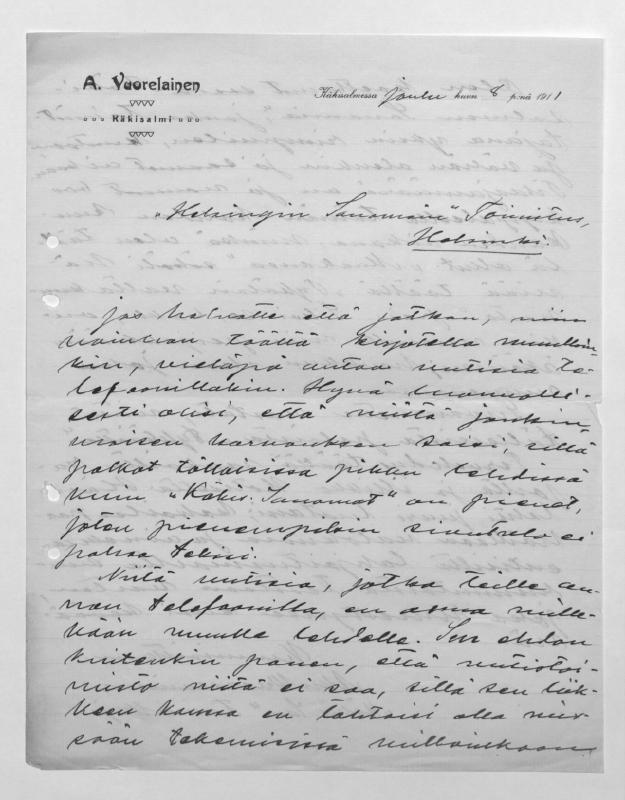 A. Vuorelainen
Käkisalmi
Käkisalmessa joulu kuun 8 p:nä 1911
„Helsingin Sanomain" Toimitus,
Helsinki.
Jos haluatte että jatkan, niin
voinhan täältä kirjotella muulloin-
kin, vieläpä antaa uutisia te-
lefoonillakin. Hyvä luonnolli-
sesti olisi, että niistä jonkin-
moisen korvauksen saisi, sillä
palkat tällaisissa pikku lehdissä
kuin „Käkis. Sanomat" on pienet,
joten pienempikin sivutulo ei
pahaa tekisi.
Niitä uutisia, jotka teille an-
nan telefoonilla, en anna mille-
kään muulle lehdelle. Sen ehdon
kuitenkin panen, että uutistoi-
misto niitä ei saa, sillä sen liik-
keen kanssa en tahtoisi olla mis-
sään tekemisissä milloinkaan